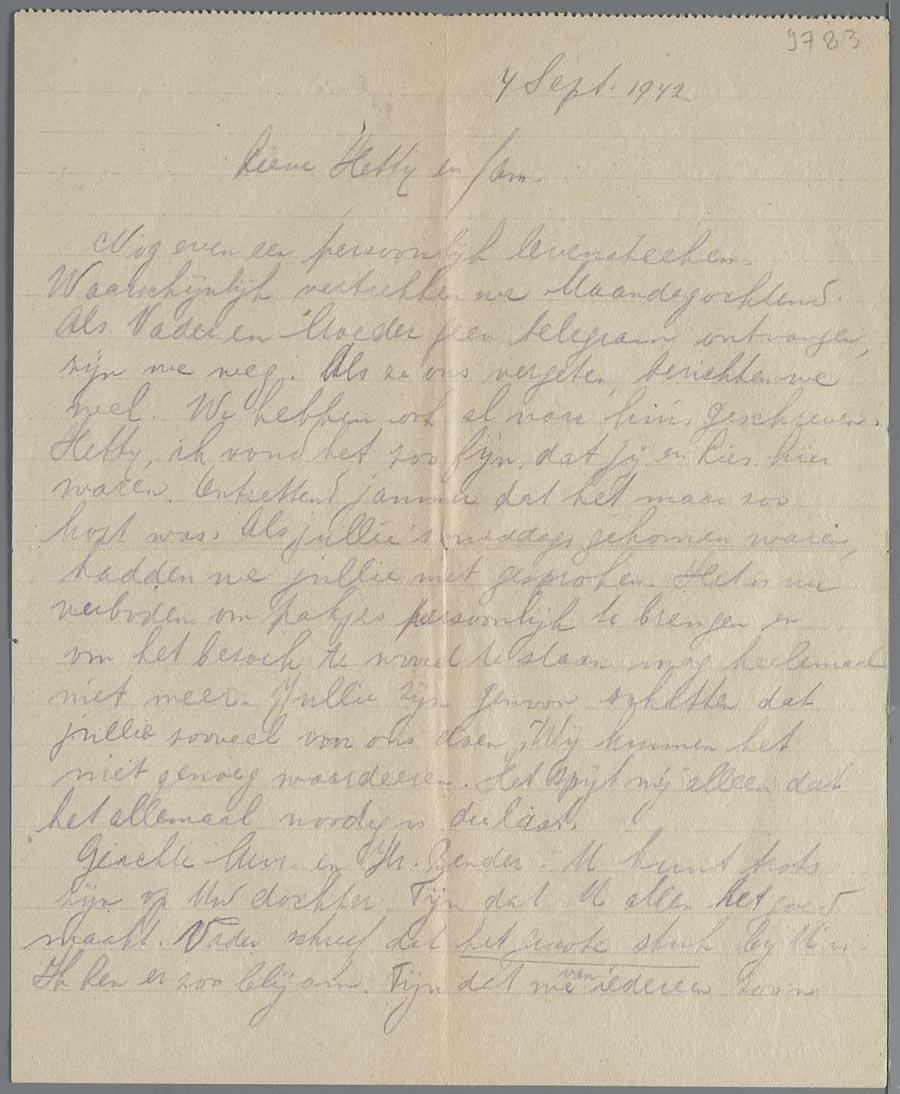 9783
4 Sept. 1942
Lieve Hetty en fam.
Nog even een persoonlijk levensteeken.
Waarschijnlijk vertrekken we Maandagochtend.
Als Vader en Moeder geen telegram ontvangen,
zijn we weg. Als ze ons vergeten, berichten we
wel. We hebben ook al naar huis geschreven.
Hetty, ik vond het zoo fijn, dat jij en Lies hier
waren. Ontzettend jammer dat het maar zoo
kort was. Als jullie 's middags gekomen waren,
hadden we jullie niet gesproken. Het is nu
verboden om pakjes persoonlijk te brengen en
om het bezoek te woord te staan mag heelemaal
niet meer. Jullie zijn gewoon schatten dat
jullie zooveel voor ons doen. Wij kunnen het
niet genoeg waardeeren. Het spijt mij alleen dat
het allemaal noodig is die last.
Geachte Mevr. en Hr. Bender. U kunt trots
zijn op Uw dochter. Fijn dat U allen het goed
maakt. Vader schreef dat het groote stuk bij U is.
Ik ben er zoo blij om. Fijn dat we van iedereen zoo'n